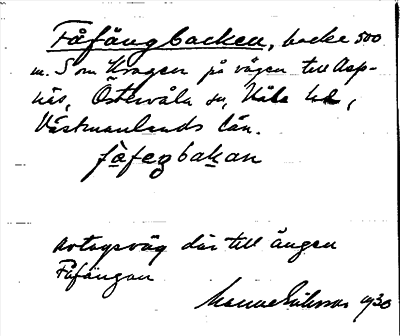 Fåfängbacken, backe 500
m. S om Kragen på vägen till Asp-
näs, Östervåla sn, Våla hd,
Västmanlands län.
fåfeŋbakan
Avtagsväg där till ängen
Fåfängan
Manne Eriksson 1930